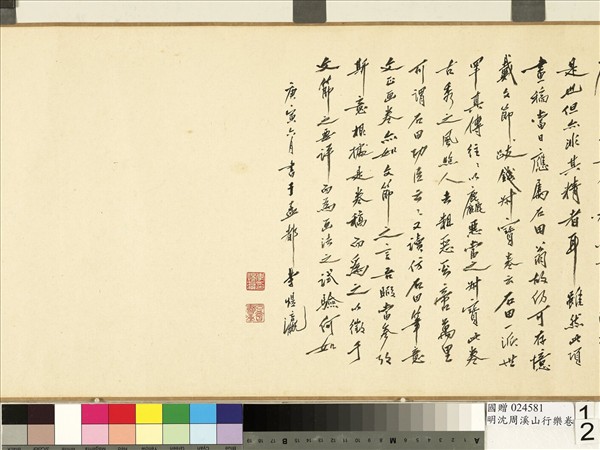 是也但亦非其精者耳雖然此項
畫稿當日應屬石田翁故仍可存憶
戴文節跋錢叔寶卷云石田一派世
罕真傳往〻以麤惡當之叔寶此卷
古秀之風照人去粗惡奚啻萬里
可謂石田功臣云〻又讀仿石田筆意
画卷亦如文節之言吾當參攷
斯意根據是卷稿而為之以徵乎
文節之要評而為画法之試驗何如
庚寅六月書于孟都 李煜瀛
國贈 024581
明沈周溪山行樂卷
12